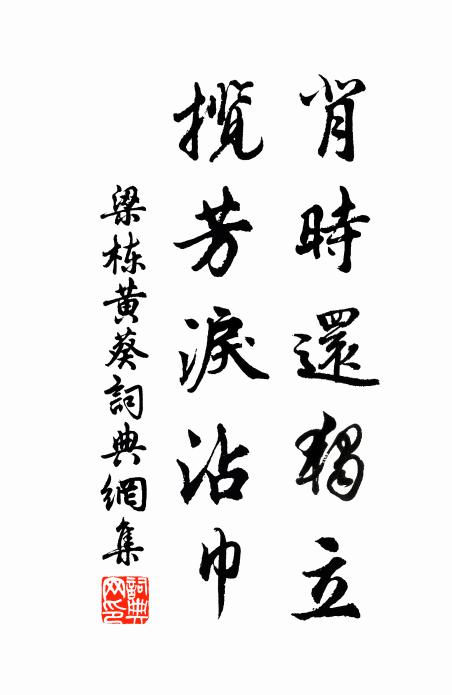 背時還獨立
攬芳淚沾巾
梁栋黃葵詞典網集
詞典
网印